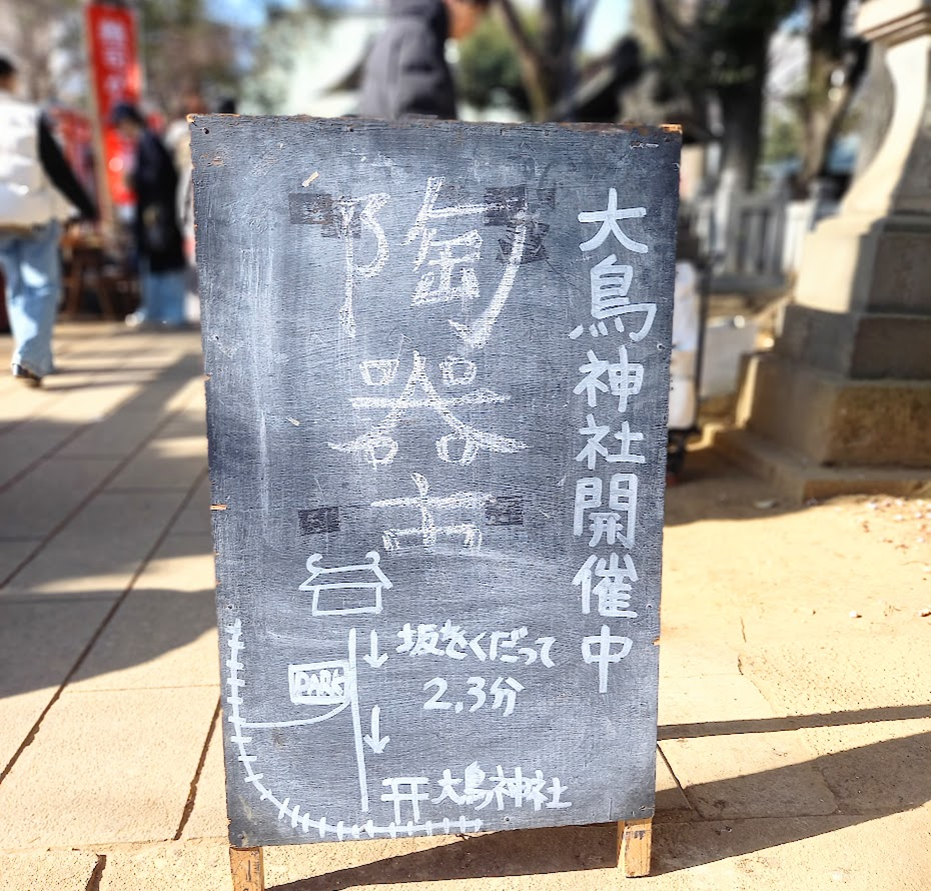 大鳥神社開催中
陶器市
坂をくだって
2,3分
PARK
大鳥神社